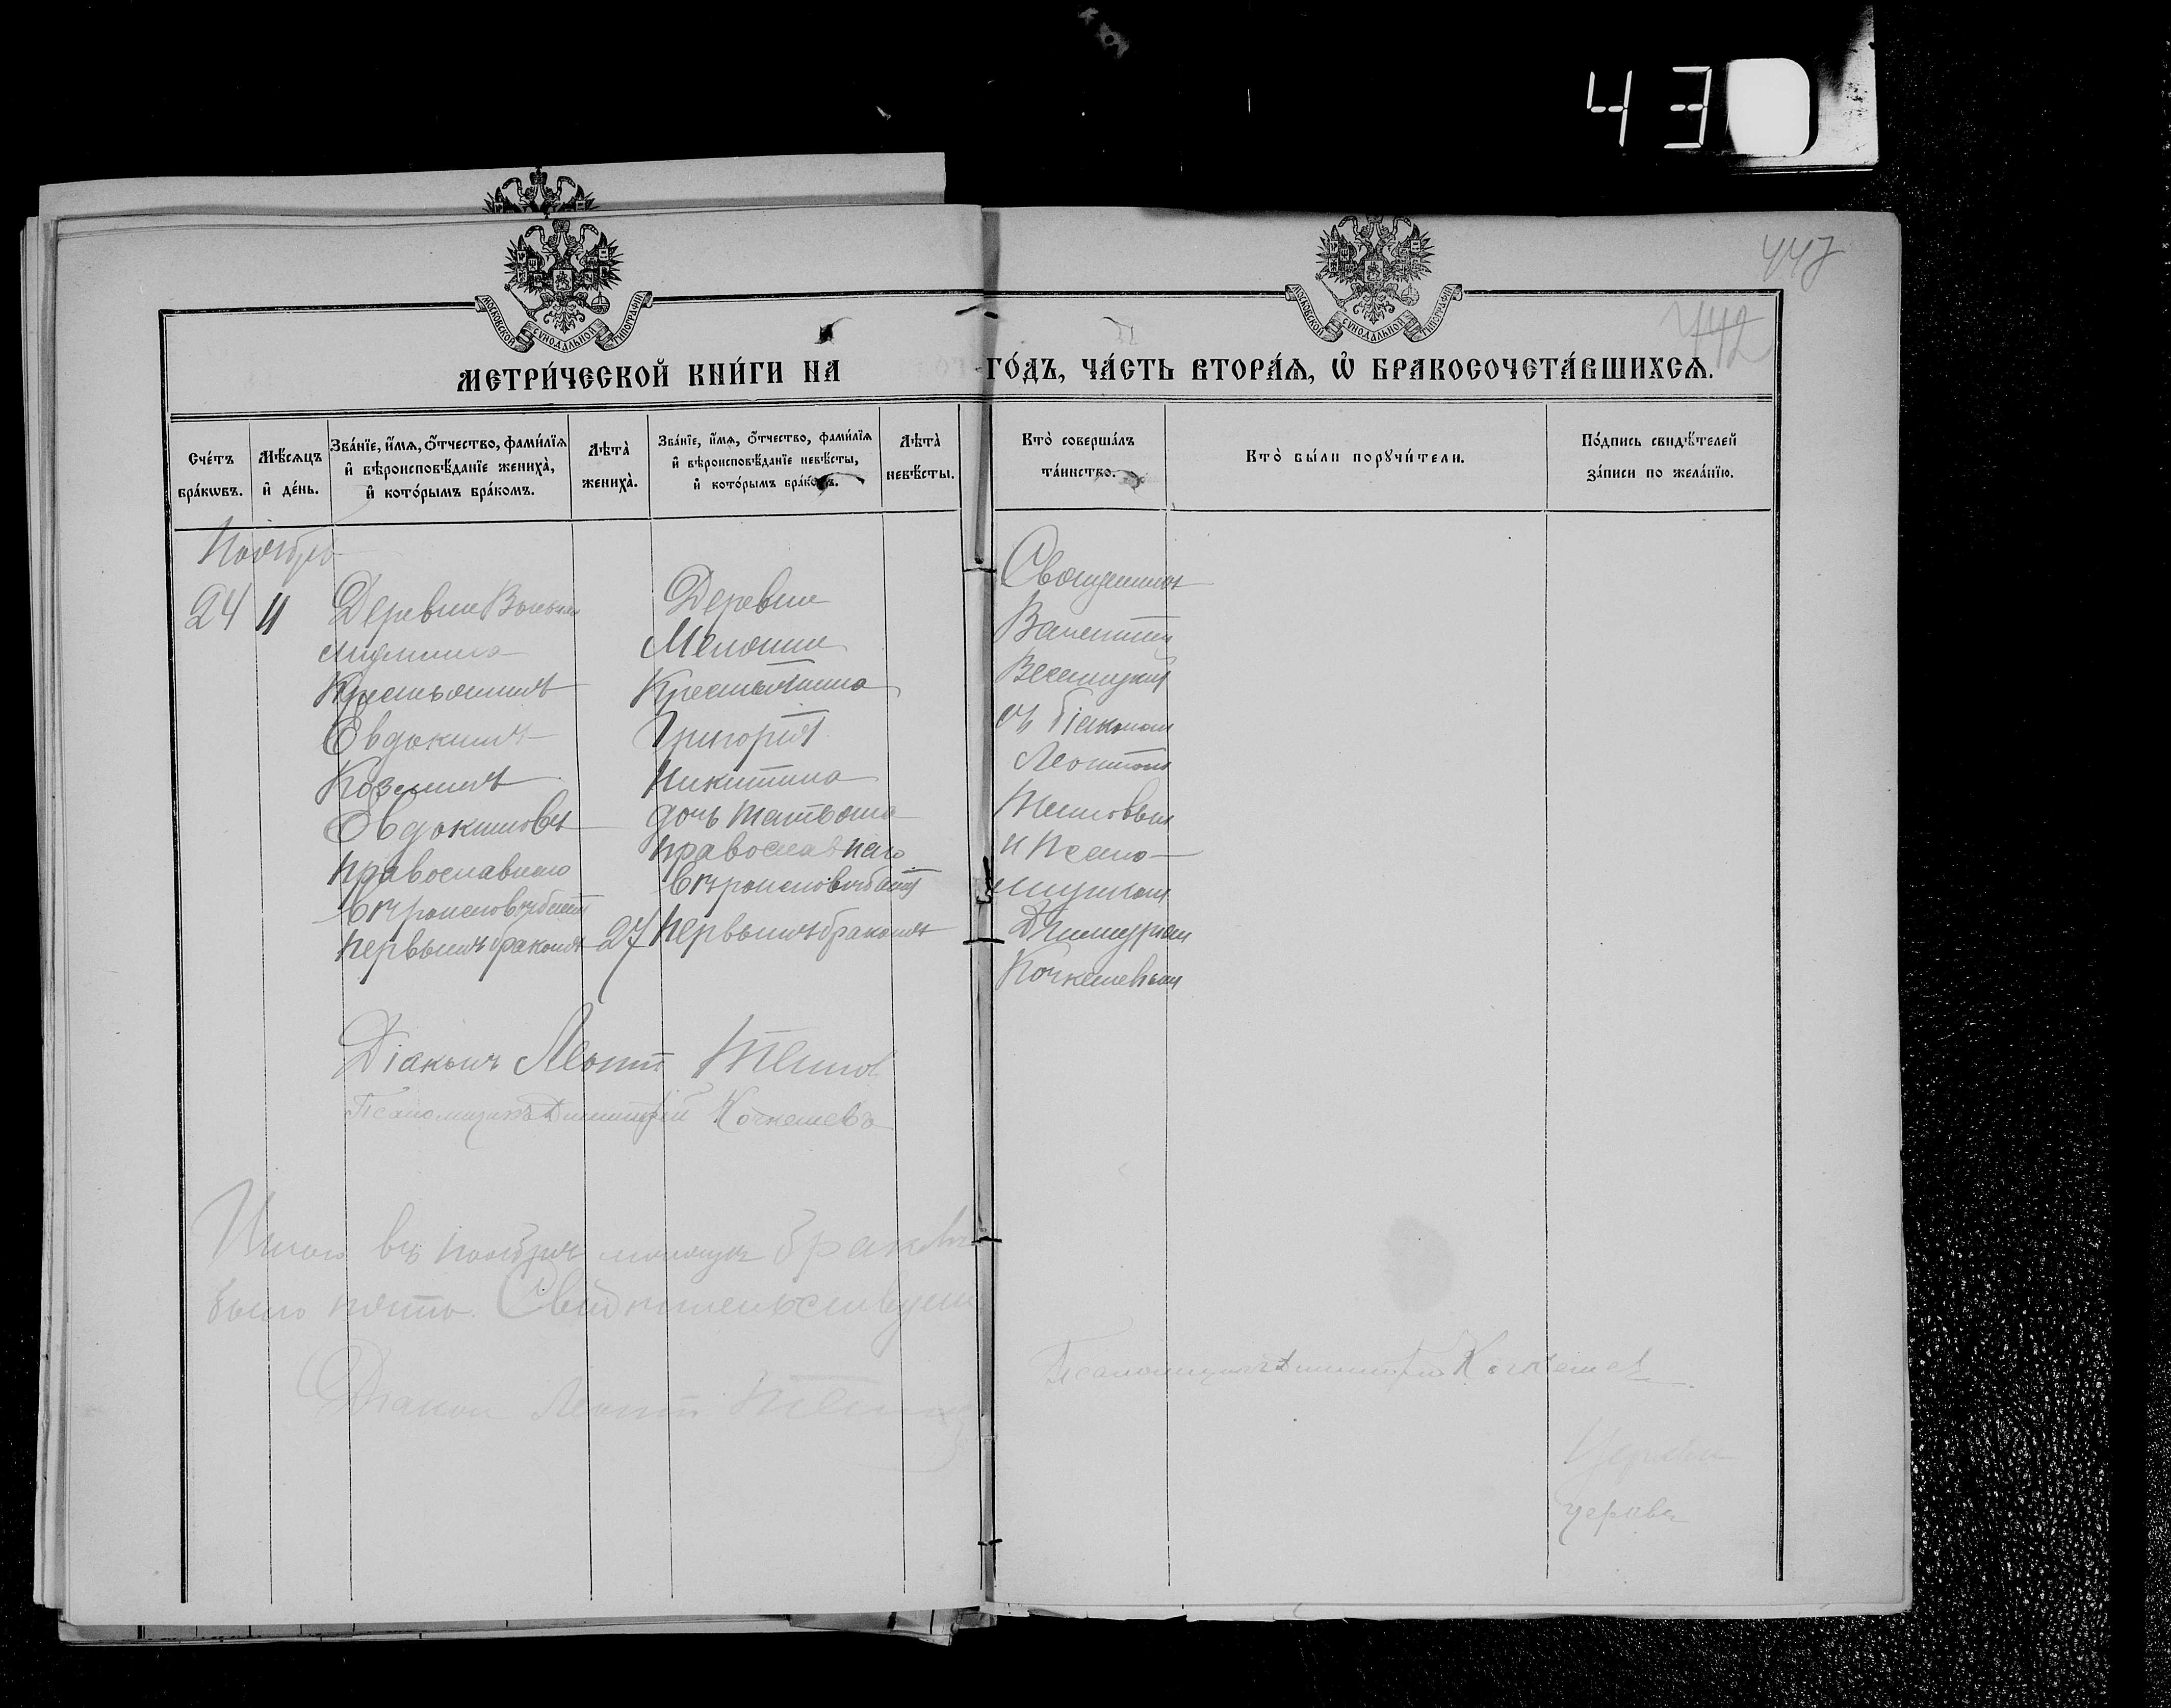 43
447
442
МОСКОВСКОЙ СѴНОДАЛЬНОЙ ТИПОГРАФІИ
МОСКОВСКОЙ СѴНОДАЛЬНОЙ ТИПОГРАФІИ
МЕТРИ́ЧЕСКОЙ КНИ́ГИ НА ГО́ДЪ, ЧА́СТЬ ВТОРА́Ѧ, Ѡ҆ БРАКОСОЧЕТА́ВШИХСѦ.
Сче́тъ
бра́кѡвъ.
Мѣ́сѧцъ
и҆ де́нь.
Зва́нїе, и҆́мѧ, ѻ҆́тчество, фами́лїѧ
и҆ вѣроисповѣ́данїе жениха̀,
и҆ кото́рымъ бра́комъ.
Лѣта̀
жениха̀.
Зва́нїе, и҆́мѧ, ѻ҆́тчество, фами́лїѧ
и҆ вѣроисповѣ́данїе невѣ́сты,
и҆ кото́рымъ бра́комъ.
Лѣта̀
невѣ́сты.
Кто̀ соверша́лъ
та́инство.
Кто̀ бы́ли порꙋчи́тели.
По́дпись свидѣ́телей
за́писи по жела́нїю.
Ноябрь
24
11
Деревни
Крестьянинъ
Евдокимъ
Козьминъ
Евдокимовъ
православнаго
вѣроисповѣданія
первымъ бракомъ
27
Деревни
Крестьянина
Григорія
Никитина
дочь Татьяна
православнаго
вѣроисповѣданія
первымъ бракомъ
Священникъ
Валентинъ
Веселицкій
съ діакономъ
Леонтіемъ
и Псало-
мщикомъ
Димитріем
Кочкаевымъ
Діаконъ Леонтій
Псаломщикъ Димитрій
Итого въ ноябрѣ мѣсяцѣ браковъ
было пять. Свидѣтельствуемъ
Діаконъ Леонтій
Псаломщикъ Димитрій
церкви